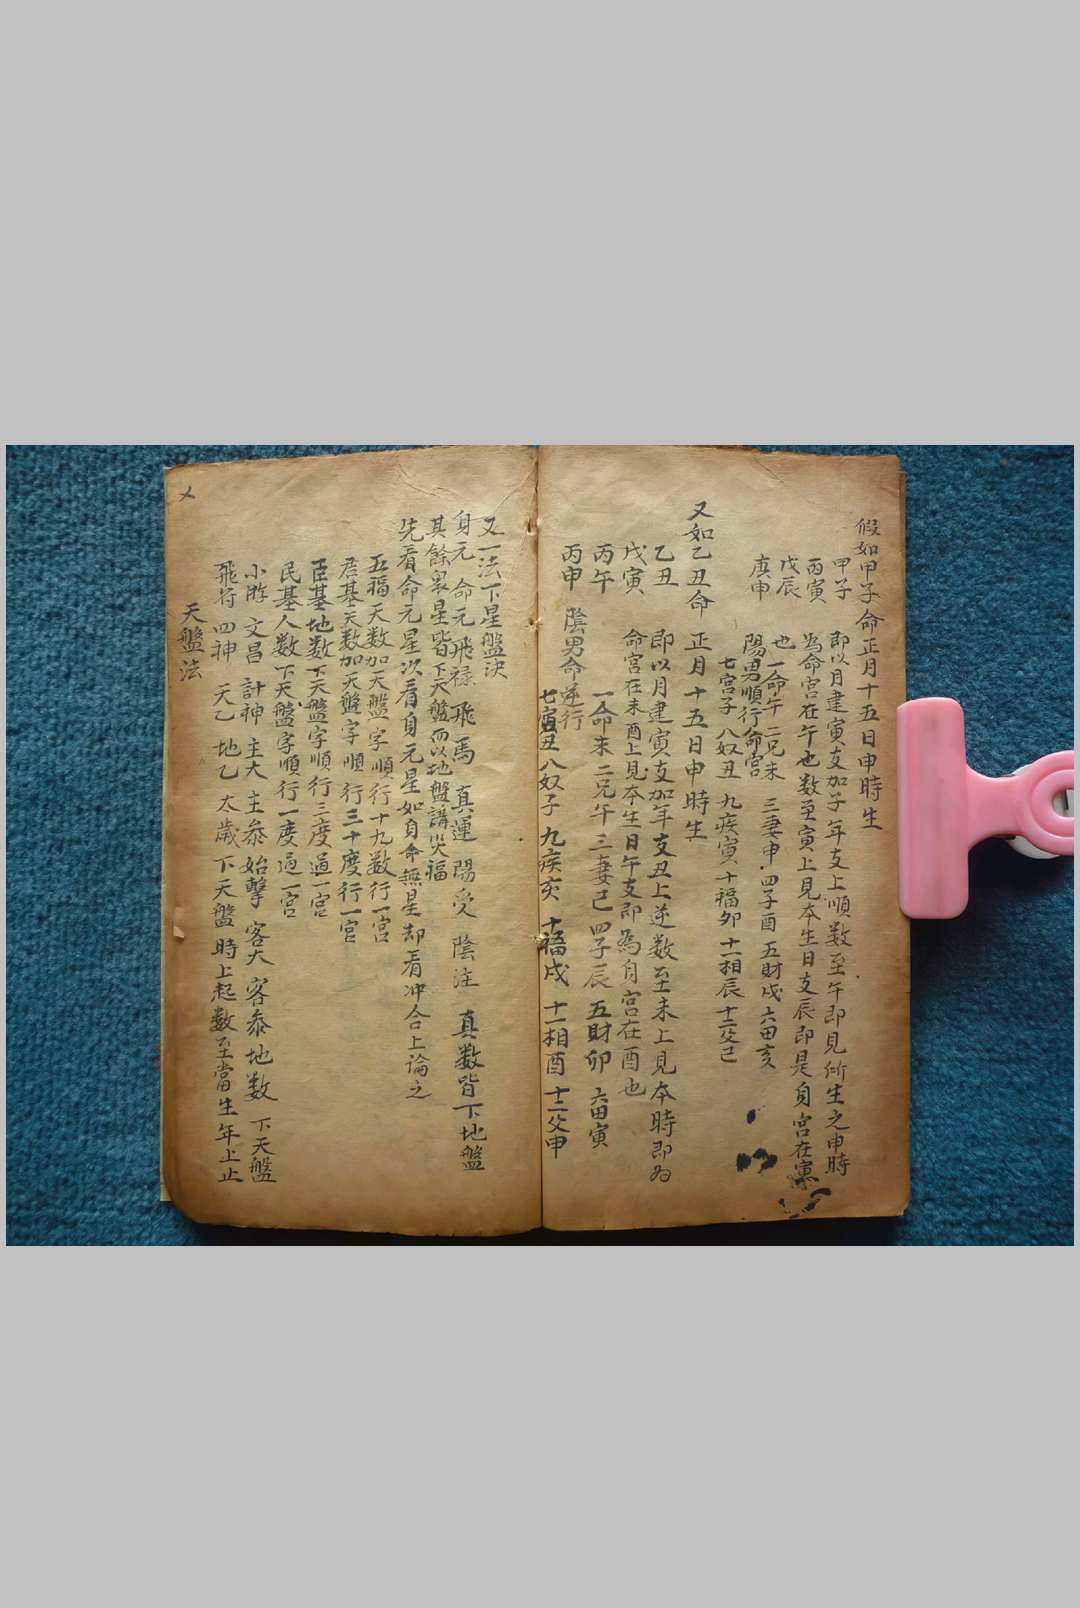 假如甲子命正月十五日申時生
甲子
丙寅
戊辰
庚申
即以月建寅支加子年支上順数至午即見所生之申時
為命宮在午也数至寅上見本生日支辰即是身宮在寅
也 一命午 二兄未 三妻申 四子酉 五財戌 六田亥
陽男順行命宮
七宮子 八奴丑 九疾寅 十福卯 十一相辰 十二父己
又如乙丑命 正月十五日申時生
乙丑
戊寅
丙午
丙申
即以月建寅支加年支丑上逆数至未上見本時即为
命宮在未酉上見本生日午支即為身宮在酉也
一命未 二兄午 三妻己 四子辰 五財卯 六田寅
陰男命逆行
七寅丑 八奴子 九疾亥 十福戌 十一相酉 十二父申
又一法下星盤决
身元 命元 飛禄 飛馬 真運 陽受 陰注 真数皆下地盤
其餘衆星皆下天盤而以地盤講災福
先看命元星次看身元星如身命無星却看冲合上論之
五福天数加天盤字順行十九数行一宮
君基天数加天盤字順行三十度行一宮
臣基地数下天盤字順行三度過一宮
民基人数下天盤字順行一度過一宮
小遊 文昌 計神 主大 主参 始擊 客大 客参 地数 下天盤
飛符 四神 天乙 地乙 太歲 下天盤 時上起数至當生年上止
天盤法